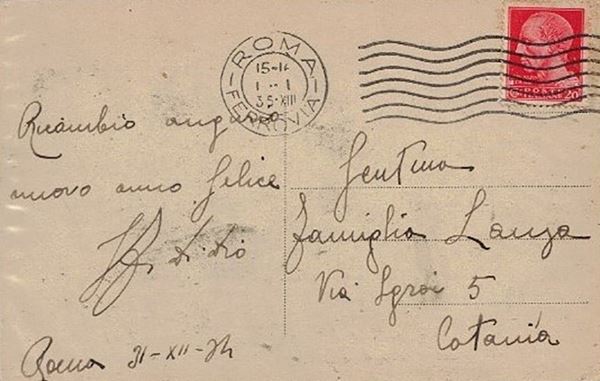 ROMA
FERROVIA
15-16
1 - 1
35-XIII
POSTE
20
Ricambio auguro
nuovo anno felice
di Dio
Roma 31-XII-34
Gentma
famiglia Lanza
Via 5
Catania